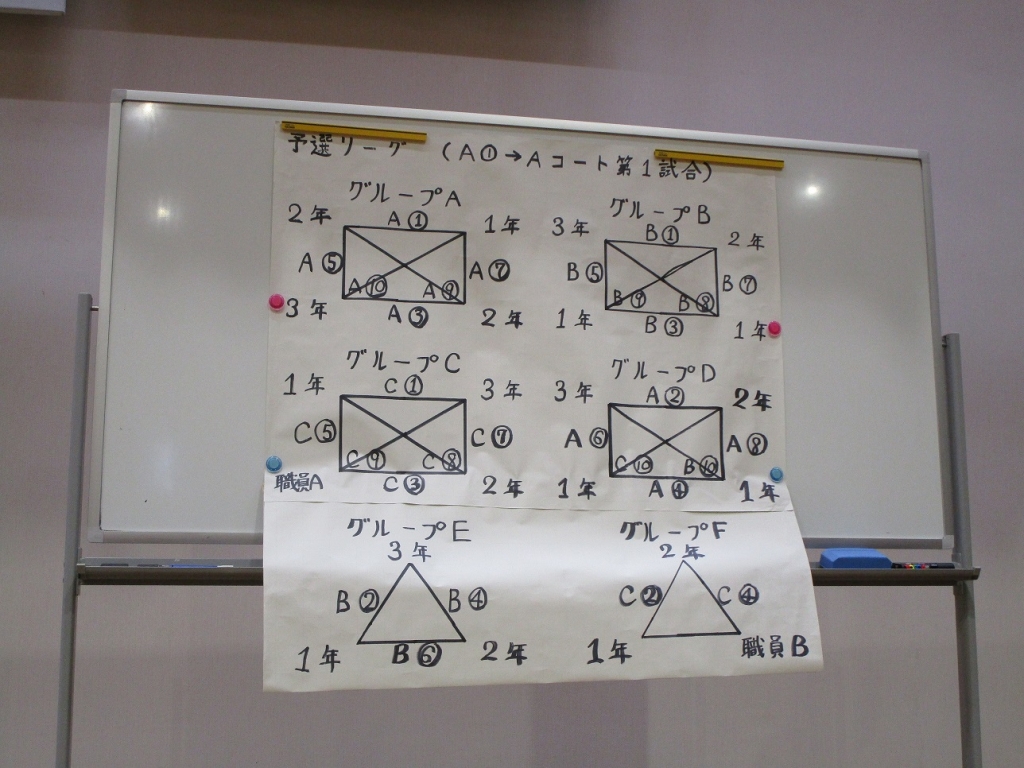 予選リーグ (A①→Aコート第1試合)
グループA
2年 A① 1年
A⑤ A⑦
A⑩ A⑨
3年 A③ 2年
グループB
3年 B① 2年
B⑤ B⑦
B⑨ B⑧
1年 B③ 1年
グループC
1年 C① 3年
C⑤ C⑦
C⑨ C⑧
職員A C③ 2年
グループD
3年 A② 2年
A⑥ A⑧
C⑩ B⑩
1年 A④ 1年
グループE
3年
B② B④
1年 B⑥ 2年
グループF
2年
C② C④
1年 職員B